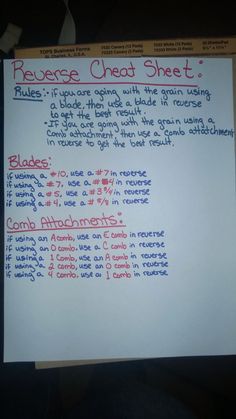 TOPS Business Forms
St. Charles, IL, U.S.A.
7530 Canary (12 Pads)
7533 White (12 Pads)
Reverse Cheat Sheet:
Rules: - if you are going with the grain using
a blade, then use a blade in reverse
to get the best result.
- If you are going with the grain using a
comb attachment, then use a comb attatchment
in reverse to get the best result.
Blades:
if using a #10, use a #7 in reverse
if using a #7, use a #4 in reverse
if using a #5, use a #3 3/4 in reverse
if using a #4, use a #5/8 in reverse
Comb Attachments:
if using an A comb, use an E comb in reverse
if using an O comb, use a C comb in reverse
if using a 1 comb, use an A comb in reverse
if using a 2 comb, use an O comb in reverse
if using a 4 comb, use a 1 comb in reverse